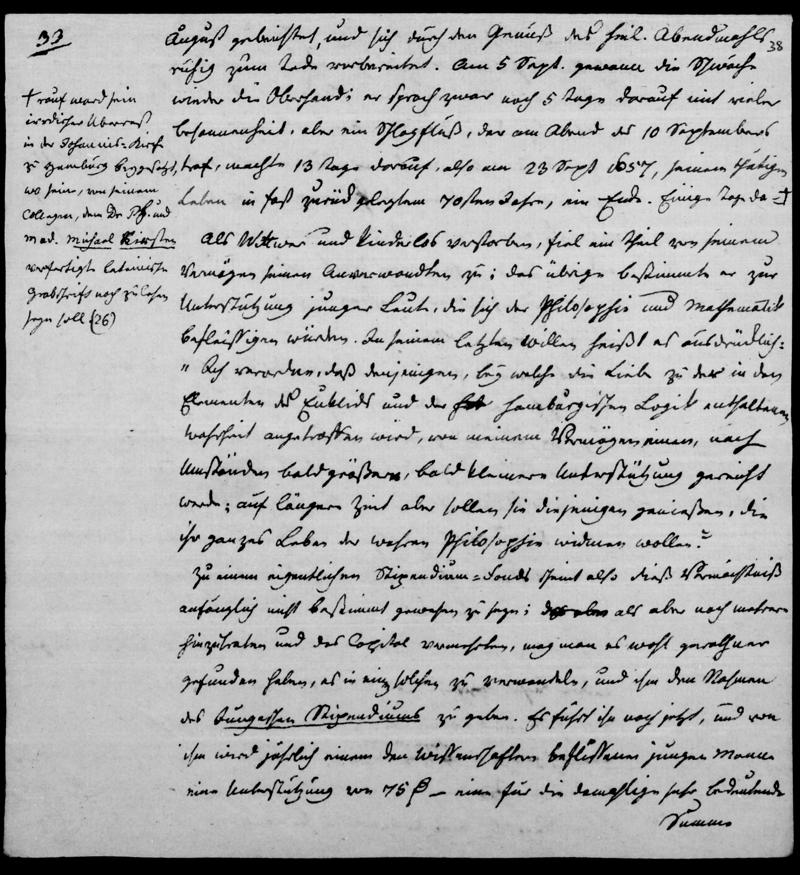 33
38
August gebeichtet, und sich durch den Genuß des heil. Abendmahls
ruhig zum Tode vorbereitet. Am 5 Sept. gewann die Schwäche
wieder die Oberhand; er sprach zwar noch 5 Tage darauf mit vieler
besonnenheit, aber ein Schlagfluß, der am Abend des 10 Septembers
traf, machte 13 Tage darauf, also am 23 Sept 1657, seinem thätigen
Leben im fast zurückgelegten 70sten Jahre, ein Ende. Einige Tage da=†
† rauf ward sein
irrdischer Überrest
in der Johannis-Kirche
zu Hamburg beygesetzt,
wo seine, von seinem
Collegen, dem Dr Ph. und
Med. Michael Kirsten
verfertigte lateinische
Grabschrift noch zu lesen
seyn soll (26)
Als Wittwer und kinderlos verstorben, fiel ein Theil von seinem
Vermögen seinen Anverwandten zu; das übrige bestimmte er zur
Unterstützung junger Leute, die sich der Philosophie und Mathematik
befleissigen würden. In seinem letzten Willen heißt es ausdrücklich:
" Ich verordne, daß denjenigen, bey welche die Liebe zu der in den
Elementen des Euklids und der hamburgischen Logik enthaltenen
Wahrheit angetroffen wird, von meinem Vermögen einen, nach
Umständen bald größern, bald kleinern Unterstützung gereicht
werde; auf längere Zeit aber sollen sie diejenigen genießen, die
ihr ganzes Leben der wahren Philosophie widmen wollen."
Zu einem eigentlichen Stipendium=Fonds scheint also dieß Vermächtniß
anfänglich nicht bestimmt gewesen zu seyn; als aber noch mehrere
hinzutraten und das Capital vermehrten, mag man es wohl gerathner
gefunden haben, es in ein solches zu verwandeln, und ihm den Nahmen
des Jungeschen Stipendiums zu geben. Es führt ihn noch jetzt, und von
ihm wird jährlich einem den Wissenschaften beflissenen jungen Manne
eine Unterstützung von 75 — eine für die damahlige sehr bedeutende
Summe